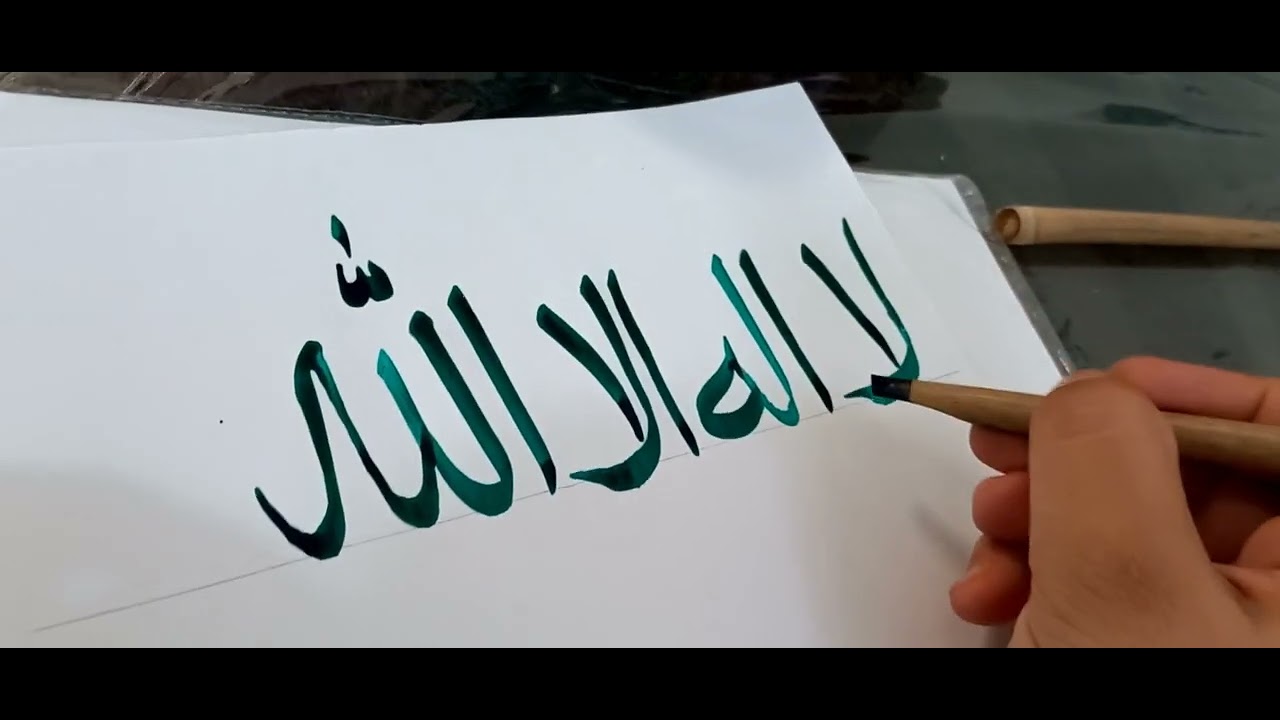 لا اله الا اللّٰه